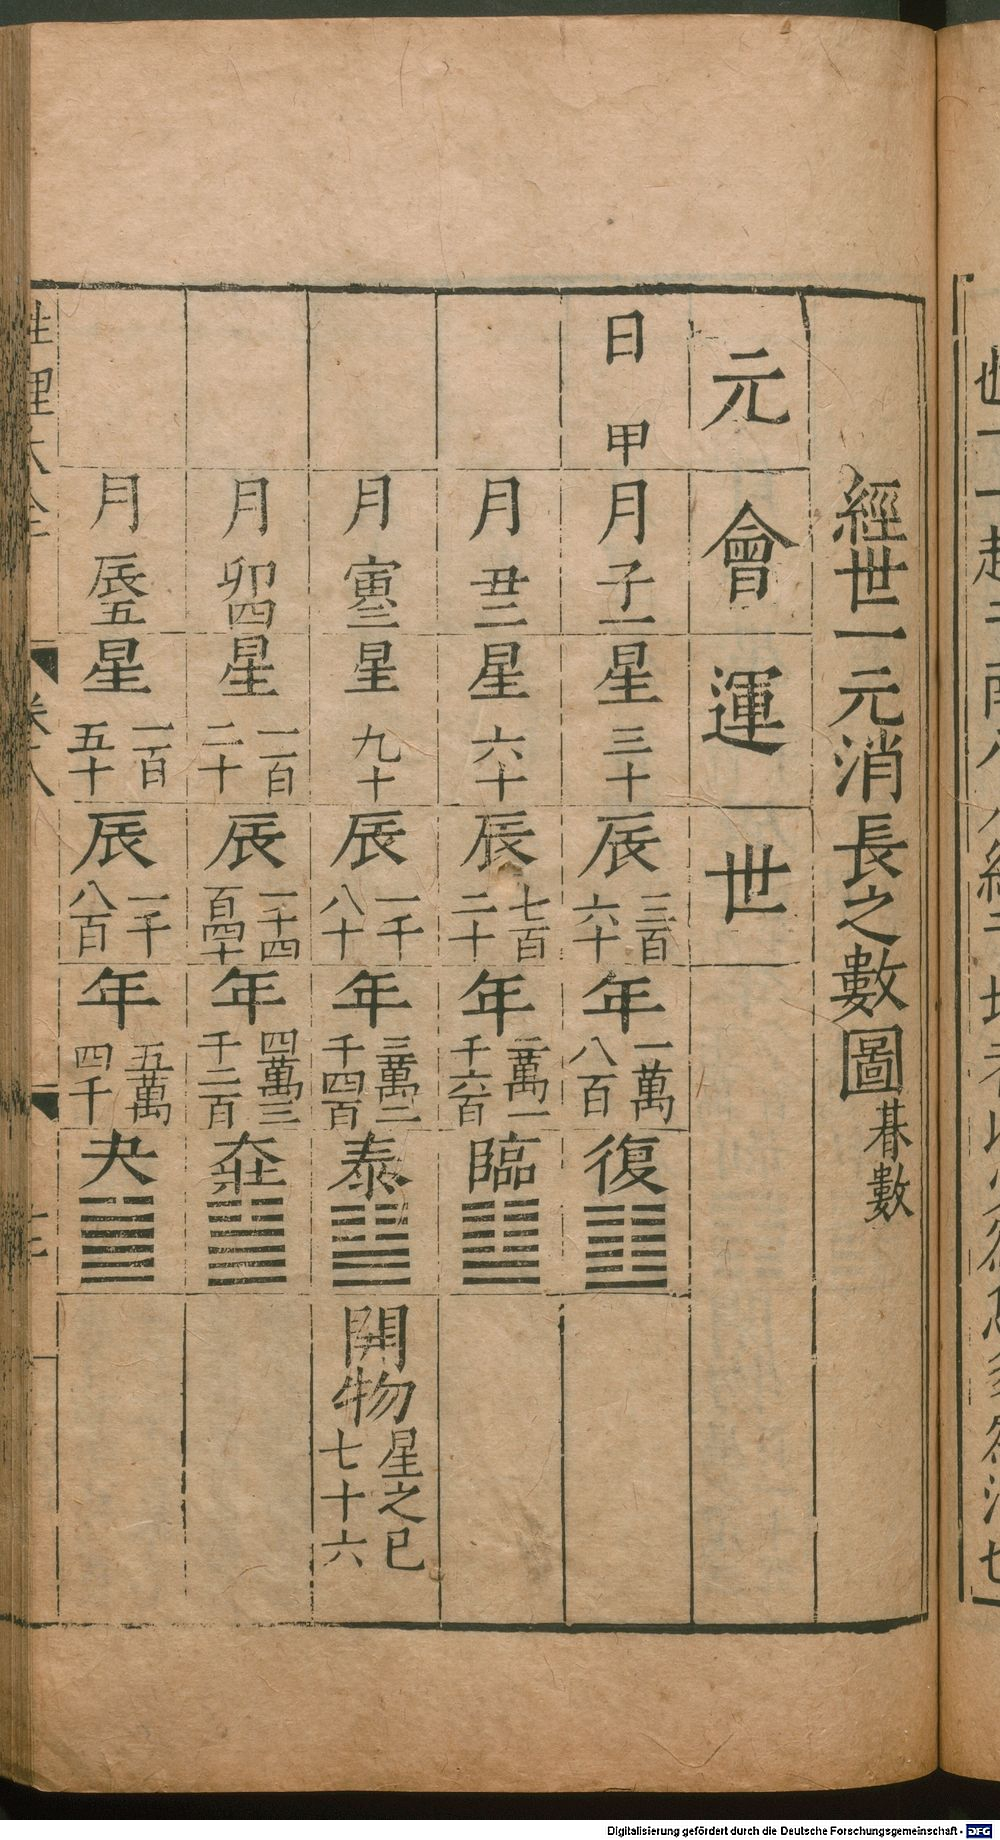 經世一元消長之數圖朞數
元 會 運 世
日甲 月子一 星三十 辰三百六十 年一萬八百 復 ䷗
月丑二 星六十 辰七百二十 年二萬一千六百 臨 ䷒
月寅三 星九十 辰一千八十 年三萬二千四百 泰 ䷊ 開物星之巳七十六
月卯四 星一百二十 辰一千四百四十 年四萬三千二百 壯 ䷡
月辰五 星一百五十 辰一千八百 年五萬四千 夬 ䷪
性理大全
Digitalisierung gefördert durch die Deutsche Forschungsgemeinschaft - DFG